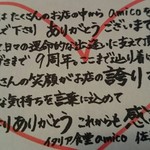 はたくさんのお店の中から amicoを
んで下さり ありがとう ございます
日々の運命的な出逢いに支えて頂
9周年 ここまで辿り着け
さんの笑顔がお店の誇り
な気持ちを言葉に込めて
りありがとう これからも 感
イタリア食堂amico 佐